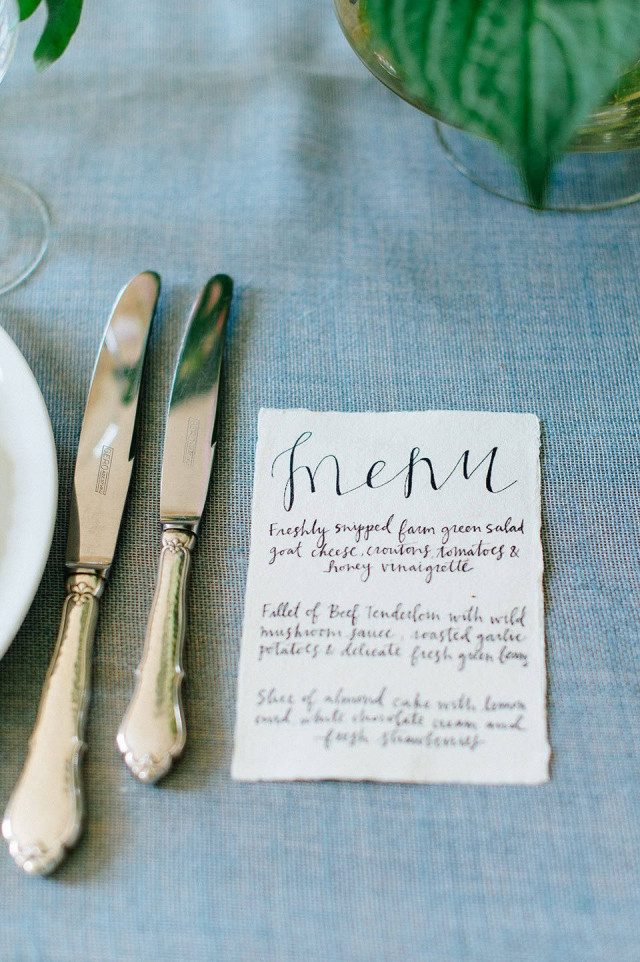 menu
Freshly snipped farm green salad
goat cheese, croutons, tomatoes &
honey vinaigrette
Fillet of Beef Tenderloin with wild
mushroom sauce, roasted garlic
potatoes & delicate fresh green beans
Slice of almond cake with lemon
curd, white chocolate cream and
fresh strawberries